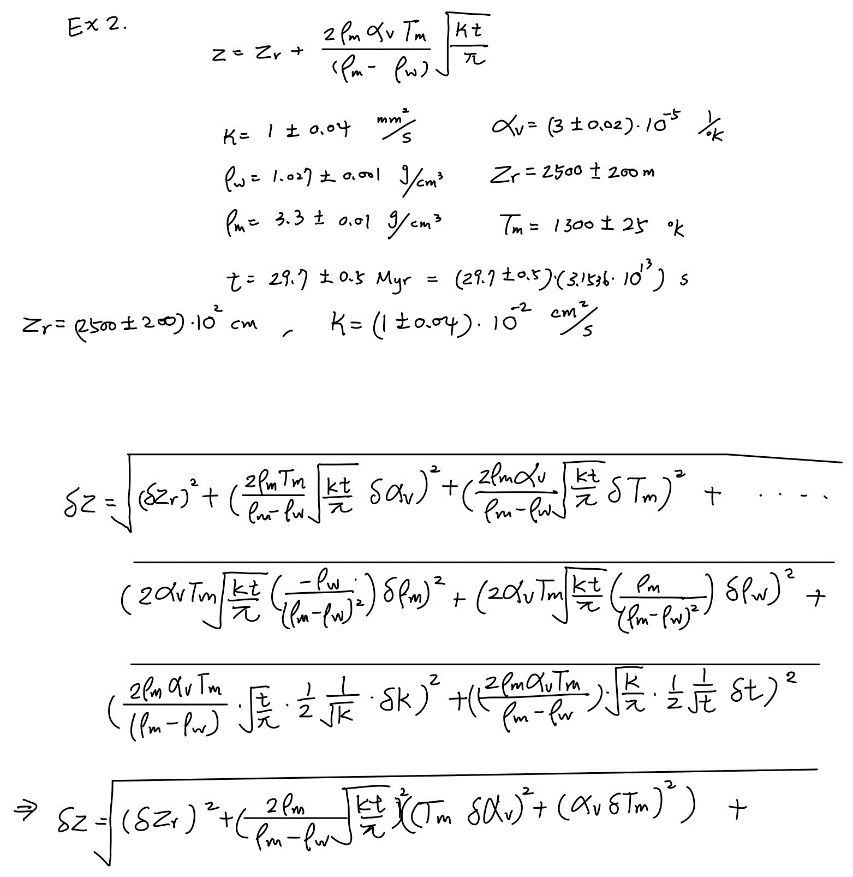 Ex 2.
z = z_r + \frac{2ρ_m α_v T_m}{(ρ_m - ρ_w)} \sqrt{\frac{kt}{π}}
K = 1 ± 0.04 mm²/s    α_v = (3 ± 0.02)·10⁻⁵ 1/°K
ρ_w = 1.027 ± 0.001 g/cm³    Z_r = 2500 ± 200 m
ρ_m = 3.3 ± 0.01 g/cm³    T_m = 1300 ± 25 °K
t = 29.7 ± 0.5 Myr = (29.7 ± 0.5)·(3.1536·10¹³) s
Z_r = (2500 ± 200)·10² cm , K = (1 ± 0.04)·10⁻² cm²/s
δz = \sqrt{(δz_r)² + (\frac{2ρ_m T_m}{ρ_m - ρ_w} \sqrt{\frac{kt}{π}} δα_v)² + (\frac{2ρ_m α_v}{ρ_m - ρ_w} \sqrt{\frac{kt}{π}} δT_m)² + ·····}
\sqrt{(2α_v T_m \sqrt{\frac{kt}{π}} (\frac{-ρ_w}{(ρ_m - ρ_w)²}) δρ_m)² + (2α_v T_m \sqrt{\frac{kt}{π}} (\frac{ρ_m}{(ρ_m - ρ_w)²}) δρ_w)² +}
\sqrt{(\frac{2ρ_m α_v T_m}{(ρ_m - ρ_w)} · \sqrt{\frac{t}{π}} · \frac{1}{2} \frac{1}{\sqrt{k}} · δk)² + ((\frac{2ρ_m α_v T_m}{ρ_m - ρ_w}) · \sqrt{\frac{k}{π}} · \frac{1}{2} \frac{1}{\sqrt{t}} δt)²}
⇒ δz = \sqrt{(δz_r)² + (\frac{2ρ_m}{ρ_m - ρ_w} \sqrt{\frac{kt}{π}})² ((T_m δα_v)² + (α_v δT_m)²) +}